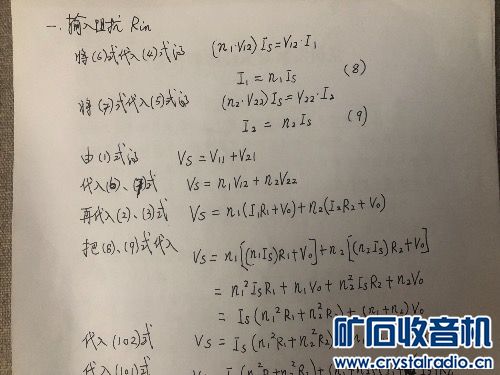 一. 输入阻抗 Rin
将(6)式代入(4)式得 (n₁·V₁₂) Is = V₁₂·I₁
I₁ = n₁Is (8)
将(7)式代入(5)式得 (n₂·V₂₂) Is = V₂₂·I₂
I₂ = n₂Is (9)
由(1)式得 Vs = V₁₁ + V₂₁
代入(6)、(7)式 Vs = n₁V₁₂ + n₂V₂₂
再代入(2)、(3)式 Vs = n₁(I₁R₁+V₀) + n₂(I₂R₂+V₀)
把(8)、(9)式代入 Vs = n₁[(n₁Is)R₁+V₀] + n₂[(n₂Is)R₂+V₀]
= n₁²IsR₁ + n₁V₀ + n₂²IsR₂ + n₂V₀
= Is(n₁²R₁ + n₂²R₂) + (n₁+n₂)V₀
代入(102)式 Vs = Is(n₁²R₁ + n₂²R₂)
代入(101)式
矿石收音机
www.crystalradio.cn